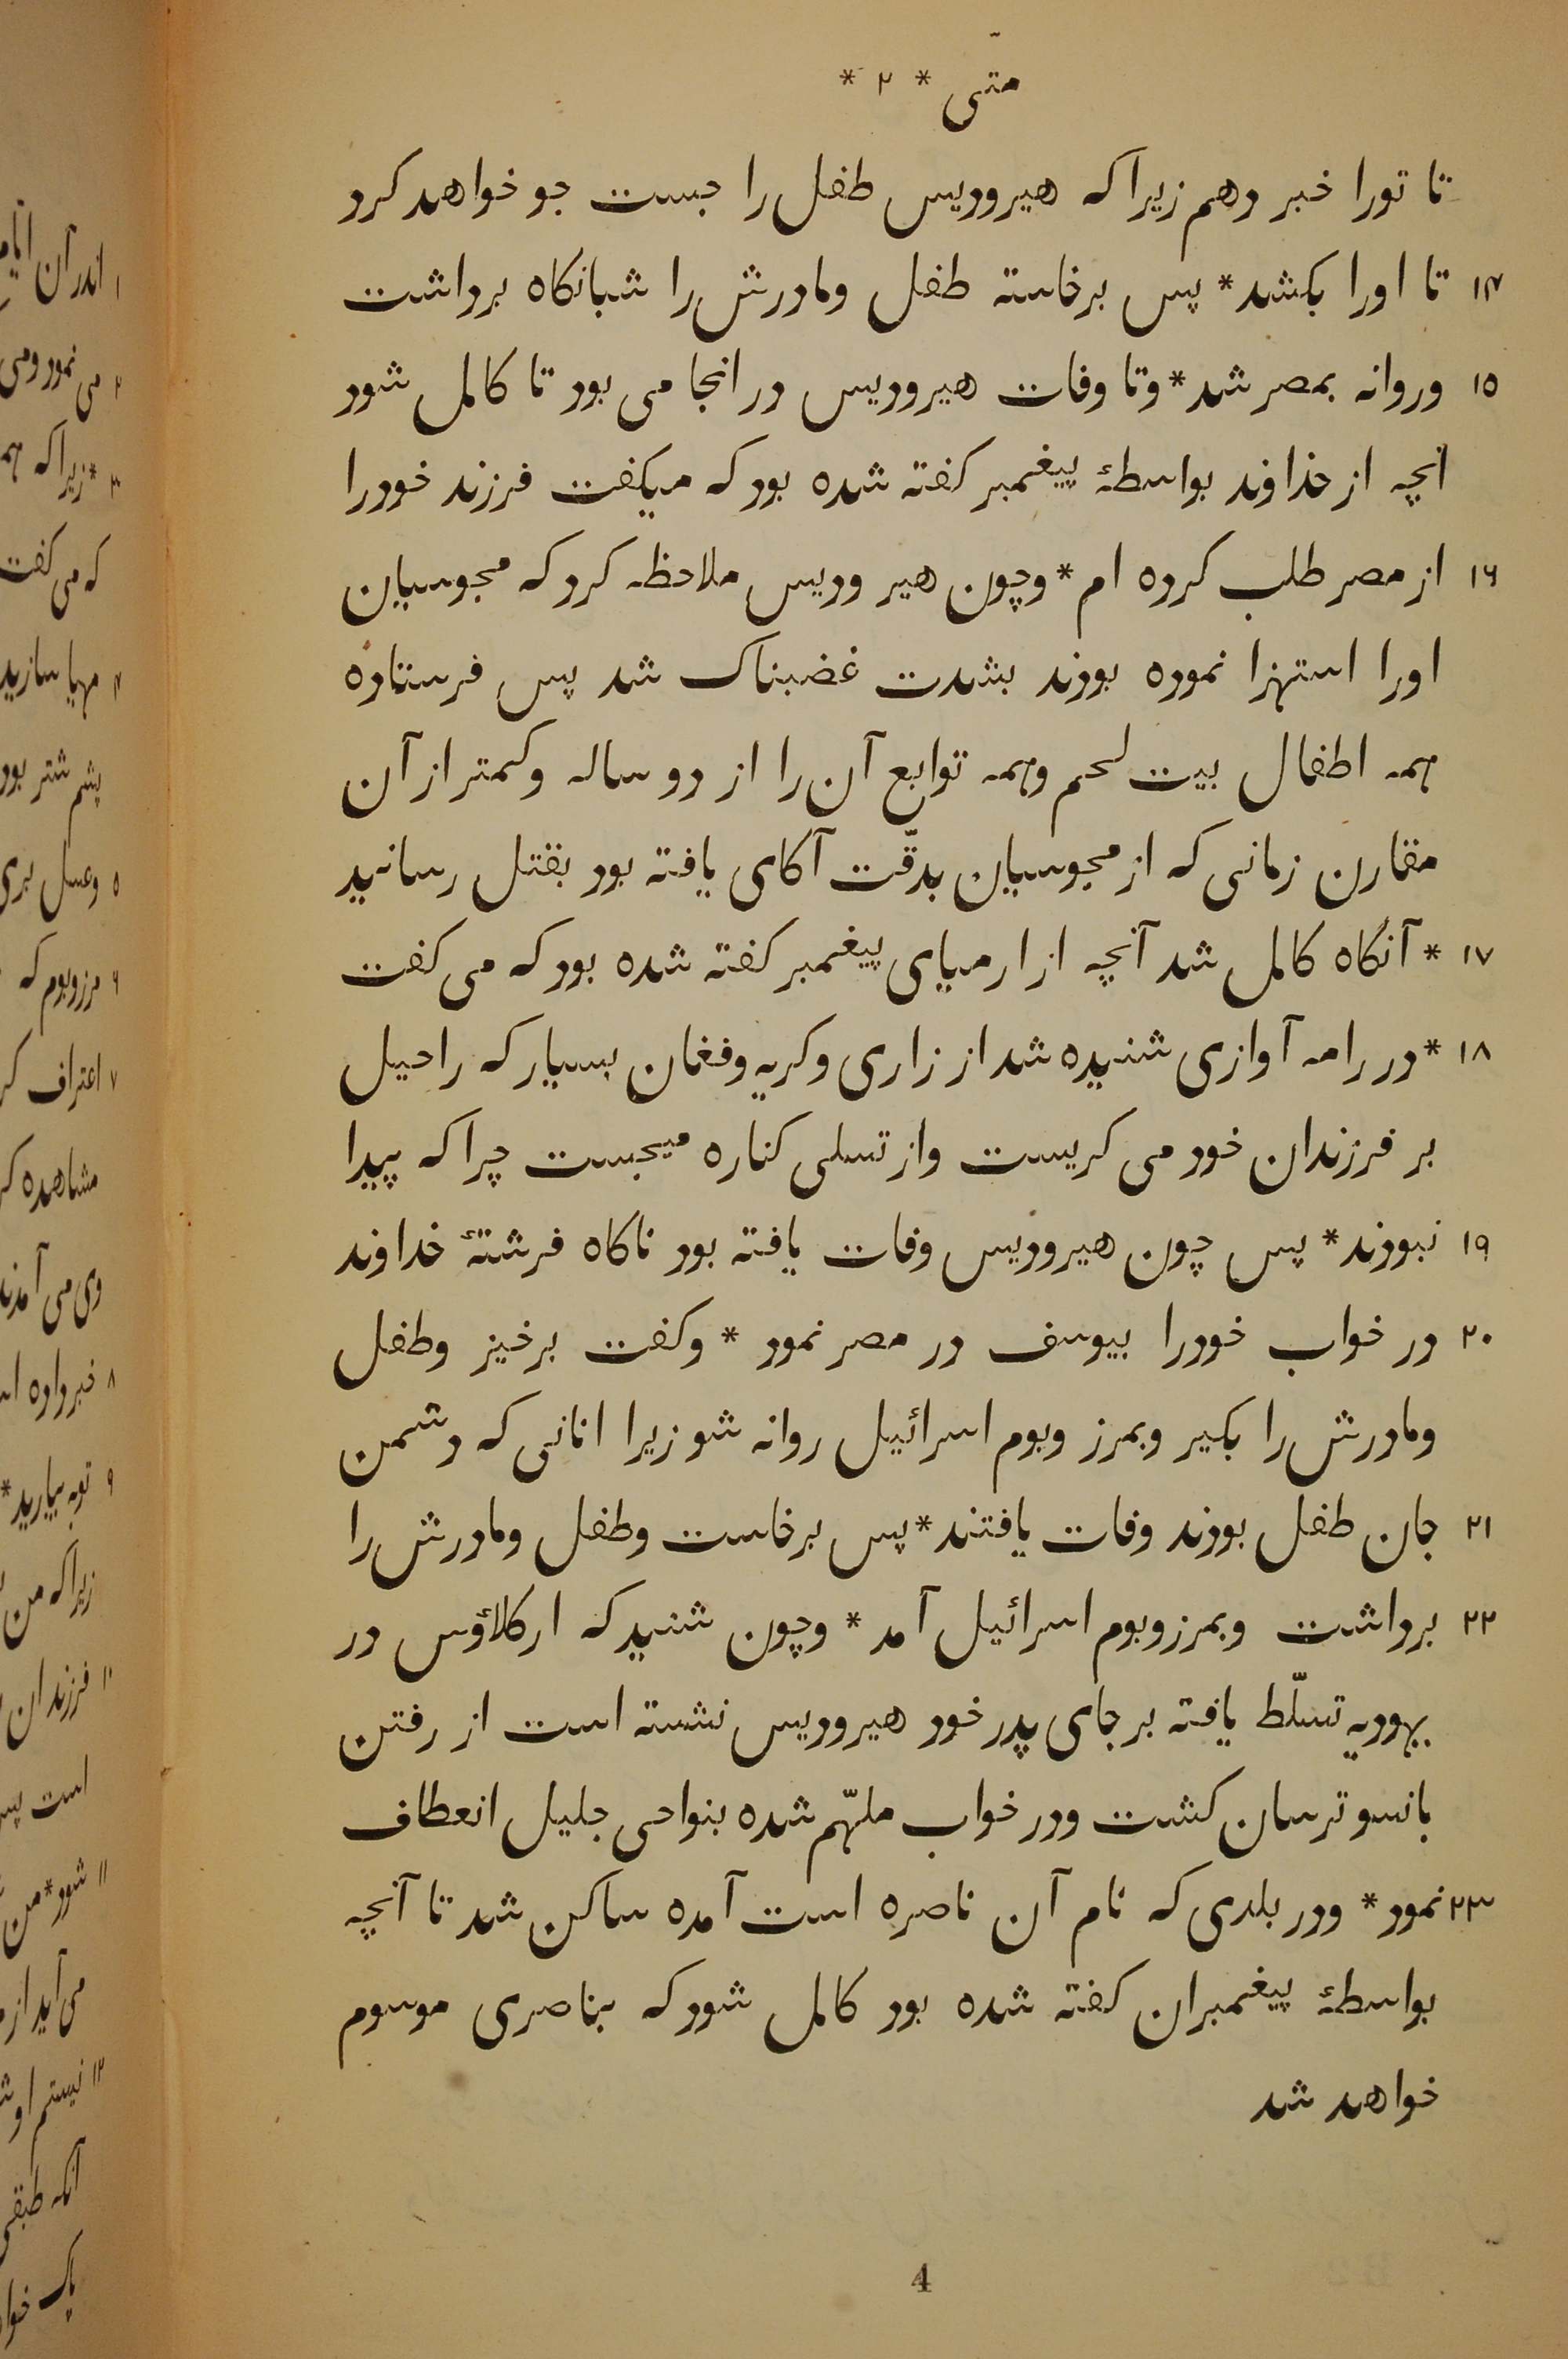 متی * ۲ *
تا تورا خبر دهم زیرا که هیرودیس طفل را جست جو خواهد کرد
۱۴ تا اورا بکشد * پس برخاسته طفل ومادرش را شبانکاه برداشت
۱۵ وروانه بمصر شد * وتا وفات هیرودیس در انجا می بود تا کامل شود
آنچه از خداوند بواسطهٔ پیغمبر کفته شده بود که میکفت فرزند خودرا
۱۶ از مصر طلب کرده ام * وچون هیرودیس ملاحظه کرد که مجوسیان
اورا استهزا نموده بودند بشدت غضبناک شد پس فرستاده
همه اطفال بیت لحم وهمه توابع آن را از دو ساله وکمتر از آن
مقارن زمانی که از مجوسیان بدقّت آکای یافته بود بقتل رسانید
۱۷ * آنکاه کامل شد آنچه از ارمیای پیغمبر کفته شده بود که می کفت
۱۸ * در رامه آوازی شنیده شد از زاری وکریه وفغان بسیار که راحیل
بر فرزندان خود می کریست واز تسلی کناره میجست چرا که پیدا
۱۹ نبودند * پس چون هیرودیس وفات یافته بود ناکاه فرشتهٔ خداوند
۲۰ در خواب خودرا بیوسف در مصر نمود * وکفت برخیز وطفل
ومادرش را بکیر وبمرز وبوم اسرائیل روانه شو زیرا انانی که دشمن
۲۱ جان طفل بودند وفات یافتند * پس برخاست وطفل ومادرش را
۲۲ برداشت وبمرز وبوم اسرائیل آمد * وچون شنید که ارکلاؤس در
یهودیه تسلّط یافته بر جای پدر خود هیرودیس نشسته است از رفتن
بانسو ترسان کشت ودر خواب ملهّم شده بنواحی جلیل انعطاف
۲۳ نمود * ودر بلدی که نام آن ناصره است آمده ساکن شد تا آنچه
بواسطهٔ پیغمبران کفته شده بود کامل شود که بناصری موسوم
خواهد شد
4
۱ اندر آن
۲ می نمود ومی
۳ * زیرا که
که می کفت
۴ مهیا سازید
پشم شتر بود
۵ وعسل بری
۶ مرز وبوم که
۷ اعتراف
مشاهده
وی می آمدند
۸ خبر داده
۹ توبه بیارید *
زیرا که من
۱۰ فرزندان
است
۱۱ شود * من
می آید از
۱۲ نیستم او
آنکه
پاک